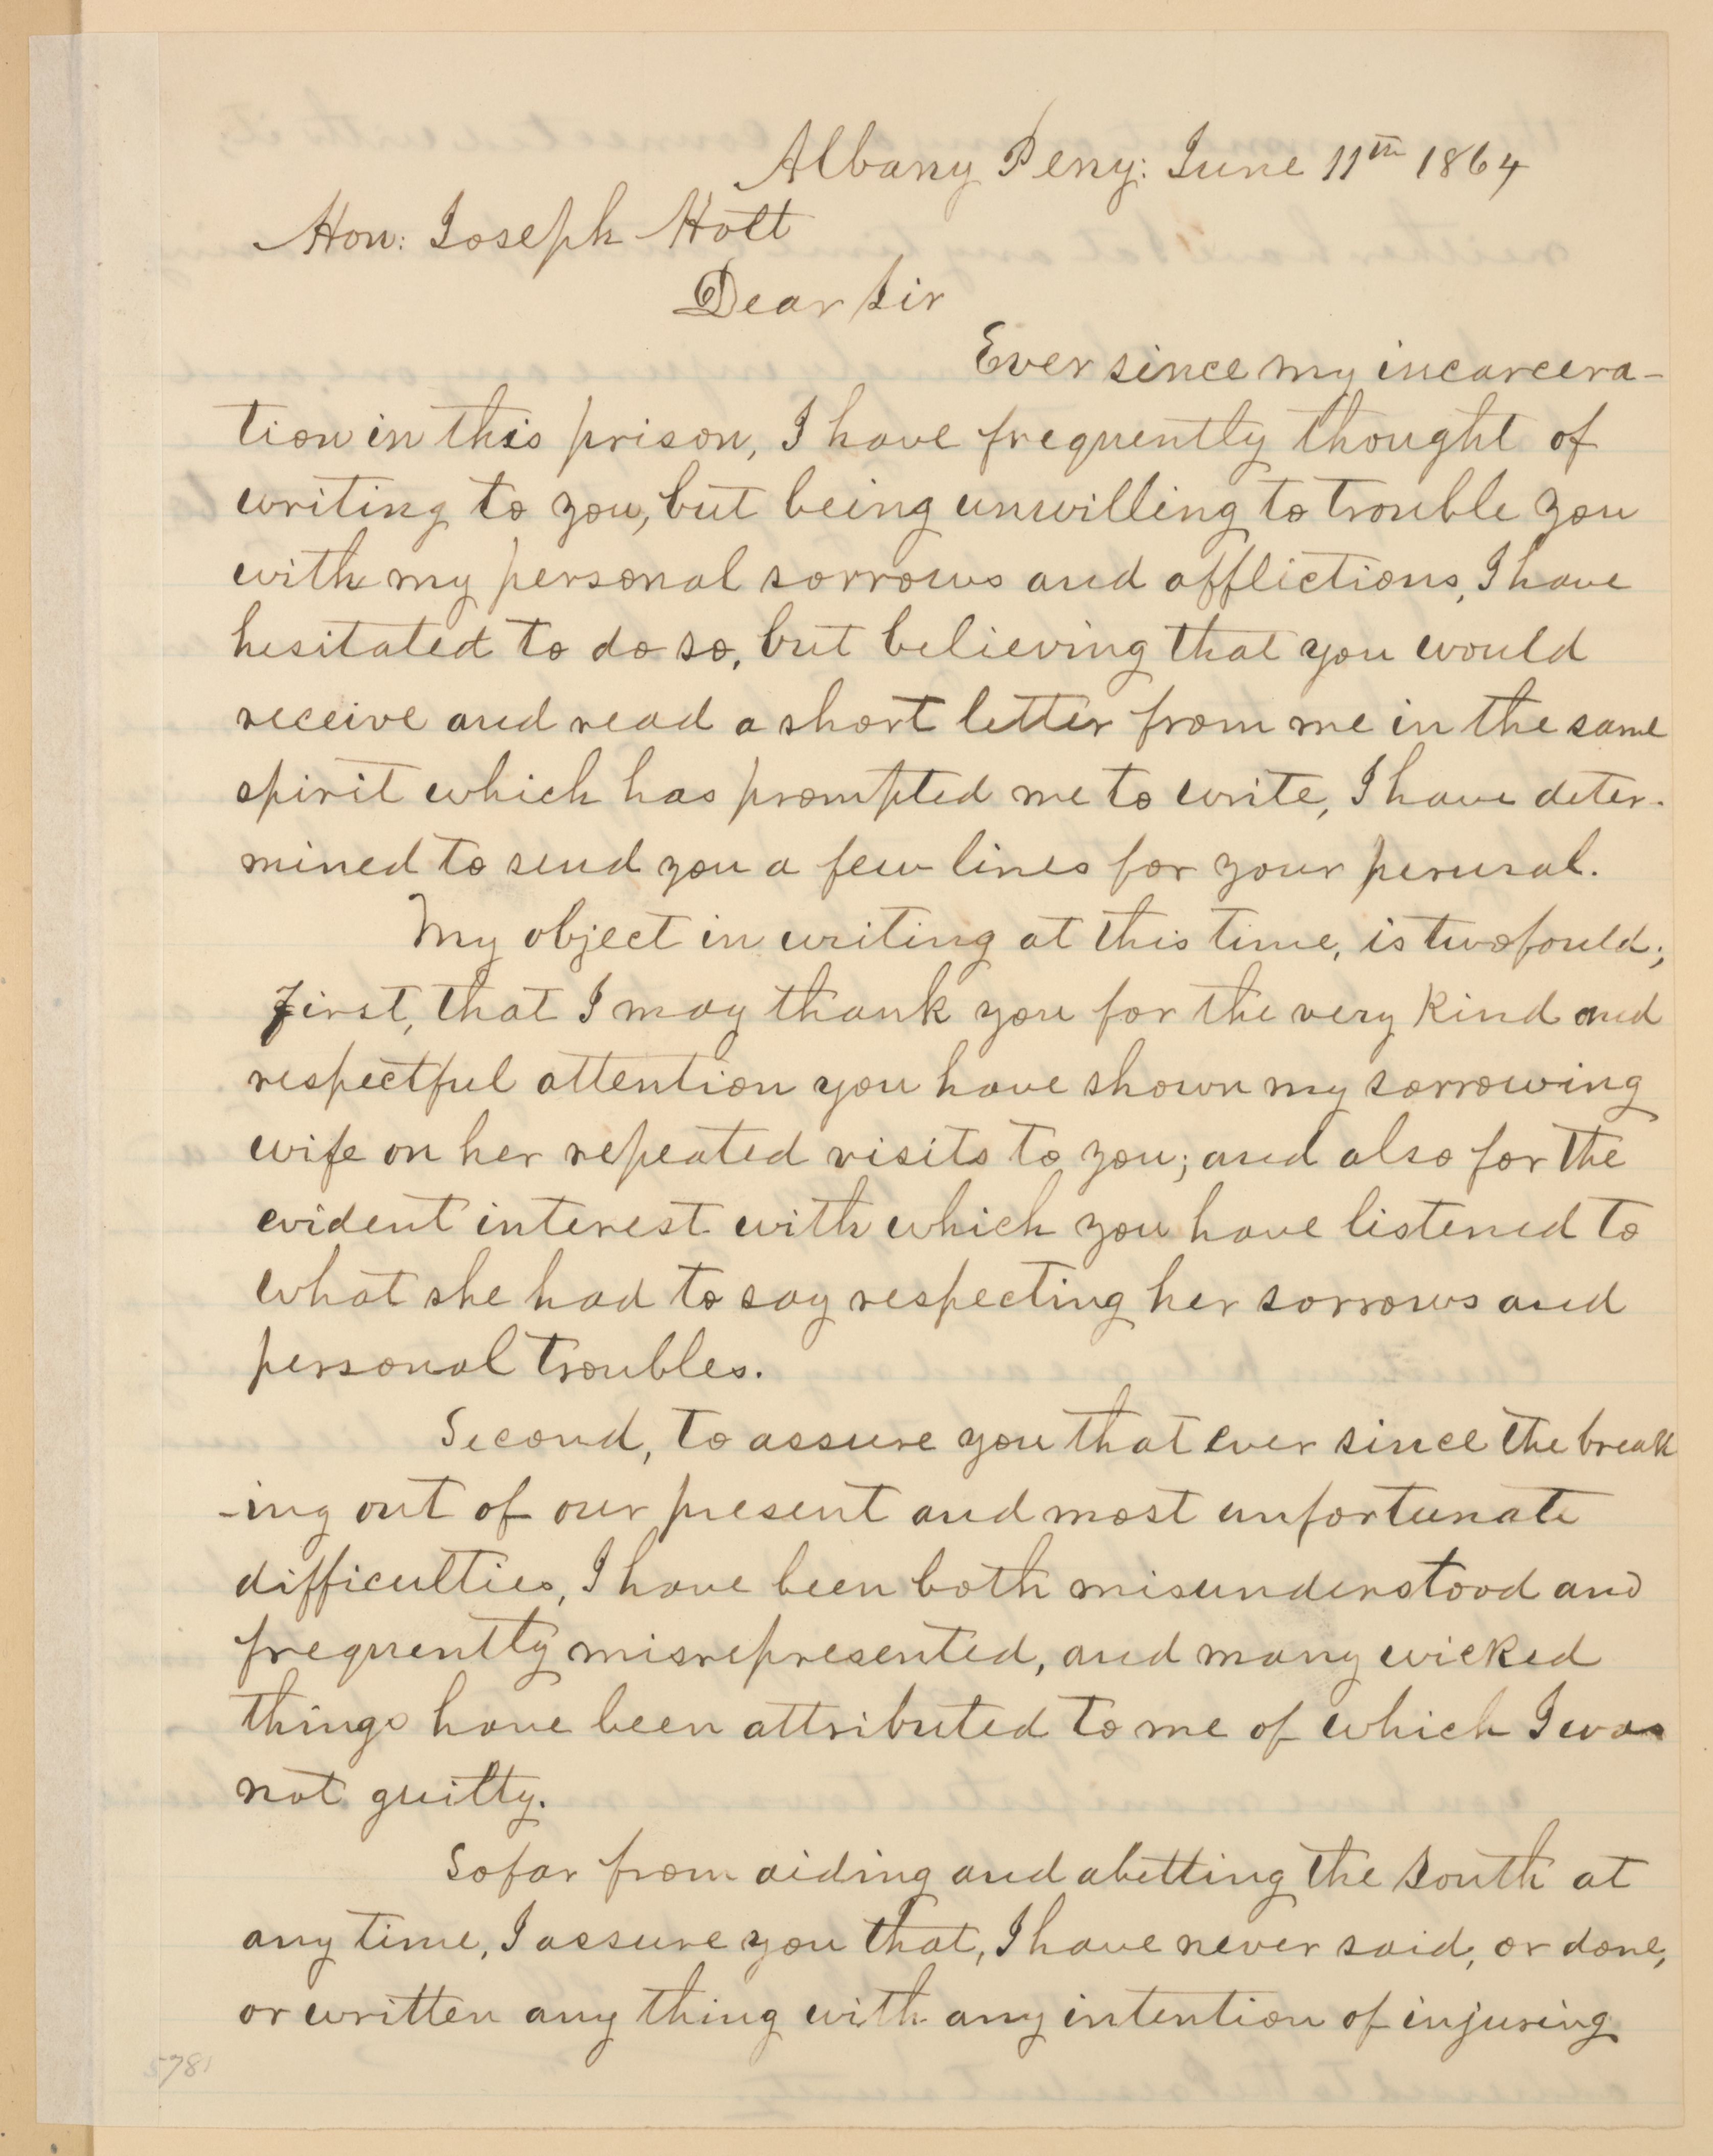 Albany Peny: June 11th 1864
Hon: Joseph Holt
Dear Sir
Ever since my incarcera-
tion in this prison, I have frequently thought of
writing to you, but being unwilling to trouble you
with my personal sorrows and afflictions, I have
hesitated to do so, but believing that you would
receive and read a short letter from me in the same
spirit which has prompted me to write, I have deter-
mined to send you a few lines for your perusal.
My object in writing at this time, is twofould;
First, that I may thank you for the very kind and
respectful attention you have shown my sorrowing
wife on her repeated visits to you; and also for the
evident interest with which you have listened to
what she had to say respecting her sorrows and
personal troubles.
Second, to assure you that ever since the break
-ing out of our present and most unfortunate
difficulties, I have been both misunderstood and
frequently misrepresented, and many wicked
things have been attributed to me of which I was
not guilty.
So far from aiding and abetting the South at
any time, I assure you that, I have never said, or done,
or written any thing with any intention of injuring
5781